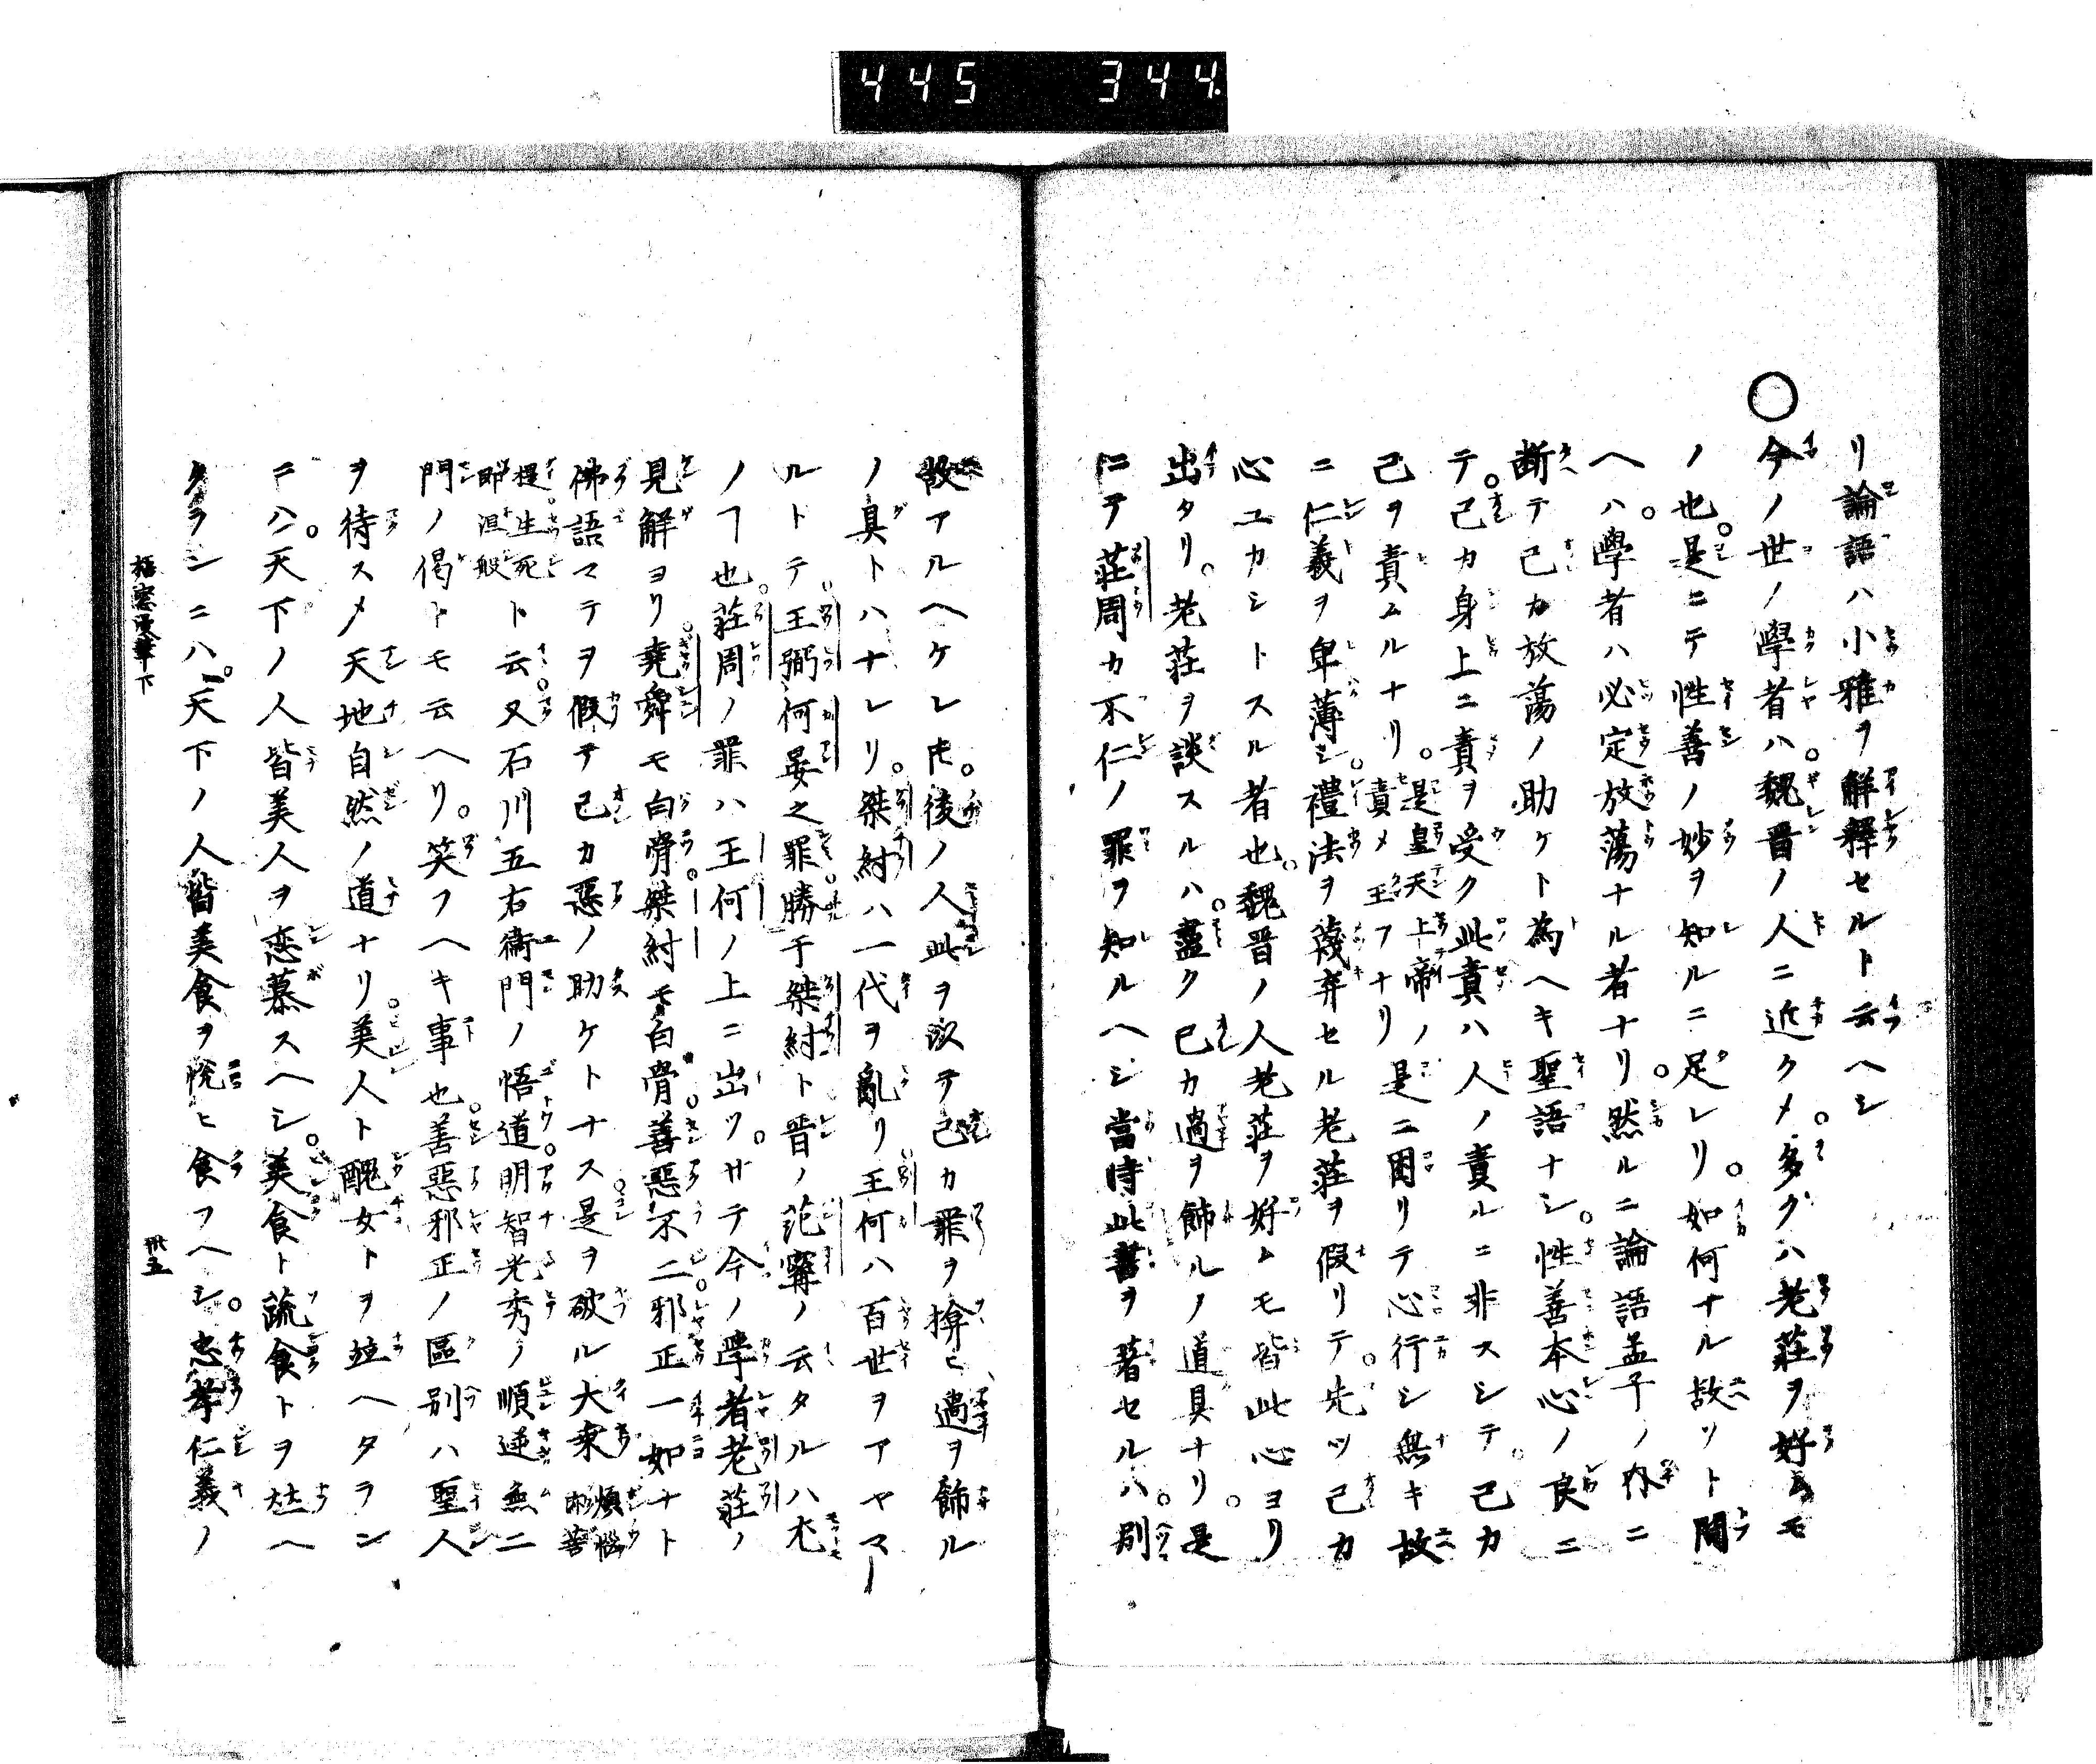 445 344.
リ論語ハ小雅ヲ解釋セルト云ヘシ
○今ノ世ノ學者ハ。魏晋ノ人ニ近クメ。多クハ老莊ヲ好ムモ
ノ也。是ニテ性善ノ妙ヲ知ルニ足レリ。如何ナル故ソト問
ヘハ。學者ハ必定放蕩ナル者ナリ。然ルニ論語孟子ノ内ニ
断テ己カ放蕩ノ助ケト為ヘキ聖語ナシ。性善本心ノ良ニ
テ。己カ身上ニ責ヲ受ク此責ハ人ノ責ルニ非スシテ。己カ
己ヲ責ムルナリ。是皇天上帝ノ責メ王フナリ是ニ困リテ心行シ無キ故
ニ仁義ヲ卑薄シ。禮法ヲ蔑弃セル老莊ヲ假リテ。先ツ己カ
心ユカシトスル者也。魏晋ノ人老莊ヲ好ムモ皆此心ヨリ
出タリ。老莊ヲ談スルハ。盡ク己カ過ヲ飾ルノ道具ナリ。是
ニテ莊周カ不仁ノ罪ヲ知ルヘシ當時此書ヲ著セルハ。別
故アルヘケレ𪜈。後ノ人此ヲ以テ己カ罪ヲ揜ヒ過ヲ飾ル
ノ具トハナレリ。桀紂ハ一代ヲ亂リ王何ハ百世ヲアヤマ
ルトテ。王弼何晏之罪勝于桀紂ト晋ノ范寗ノ云タルハ尤
ノヿ也。莊周ノ罪ハ王何ノ上ニ出ツ。サテ今ノ學者老莊ノ
見解ヨリ堯舜モ白骨。桀紂モ白骨。善惡不二邪正一如ナト
佛語マテヲ假テ己カ惡ノ助ケトナス是ヲ破ル大乗煩惱即菩
提生死即涅般ト云又石川五右衛門ノ悟道。明智光秀ノ順逆無二
門ノ偈トモ云ヘリ。笑フヘキ事也。善惡邪正ノ區別ハ聖人
ヲ待スメ天地自然ノ道ナリ。美人ト醜女トヲ竝ヘタラン
ニハ。天下ノ人皆美人ヲ恋慕スヘシ。美食ト蔬食トヲ竝ヘ
タランニハ。天下ノ人皆美食ヲ悦ヒ食フヘシ。忠孝仁義ノ
梧窓漫筆下
卅五